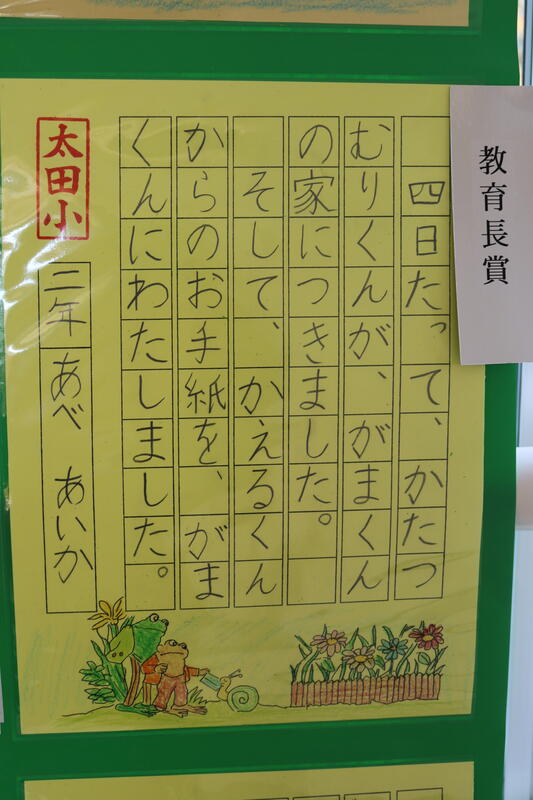 教育長賞
四日たって、かたつ
むりくんが、がまくん
の家につきました。
そして、かえるくん
からのお手紙を、がま
くんにわたしました。
太田小
二年
あべ あいか